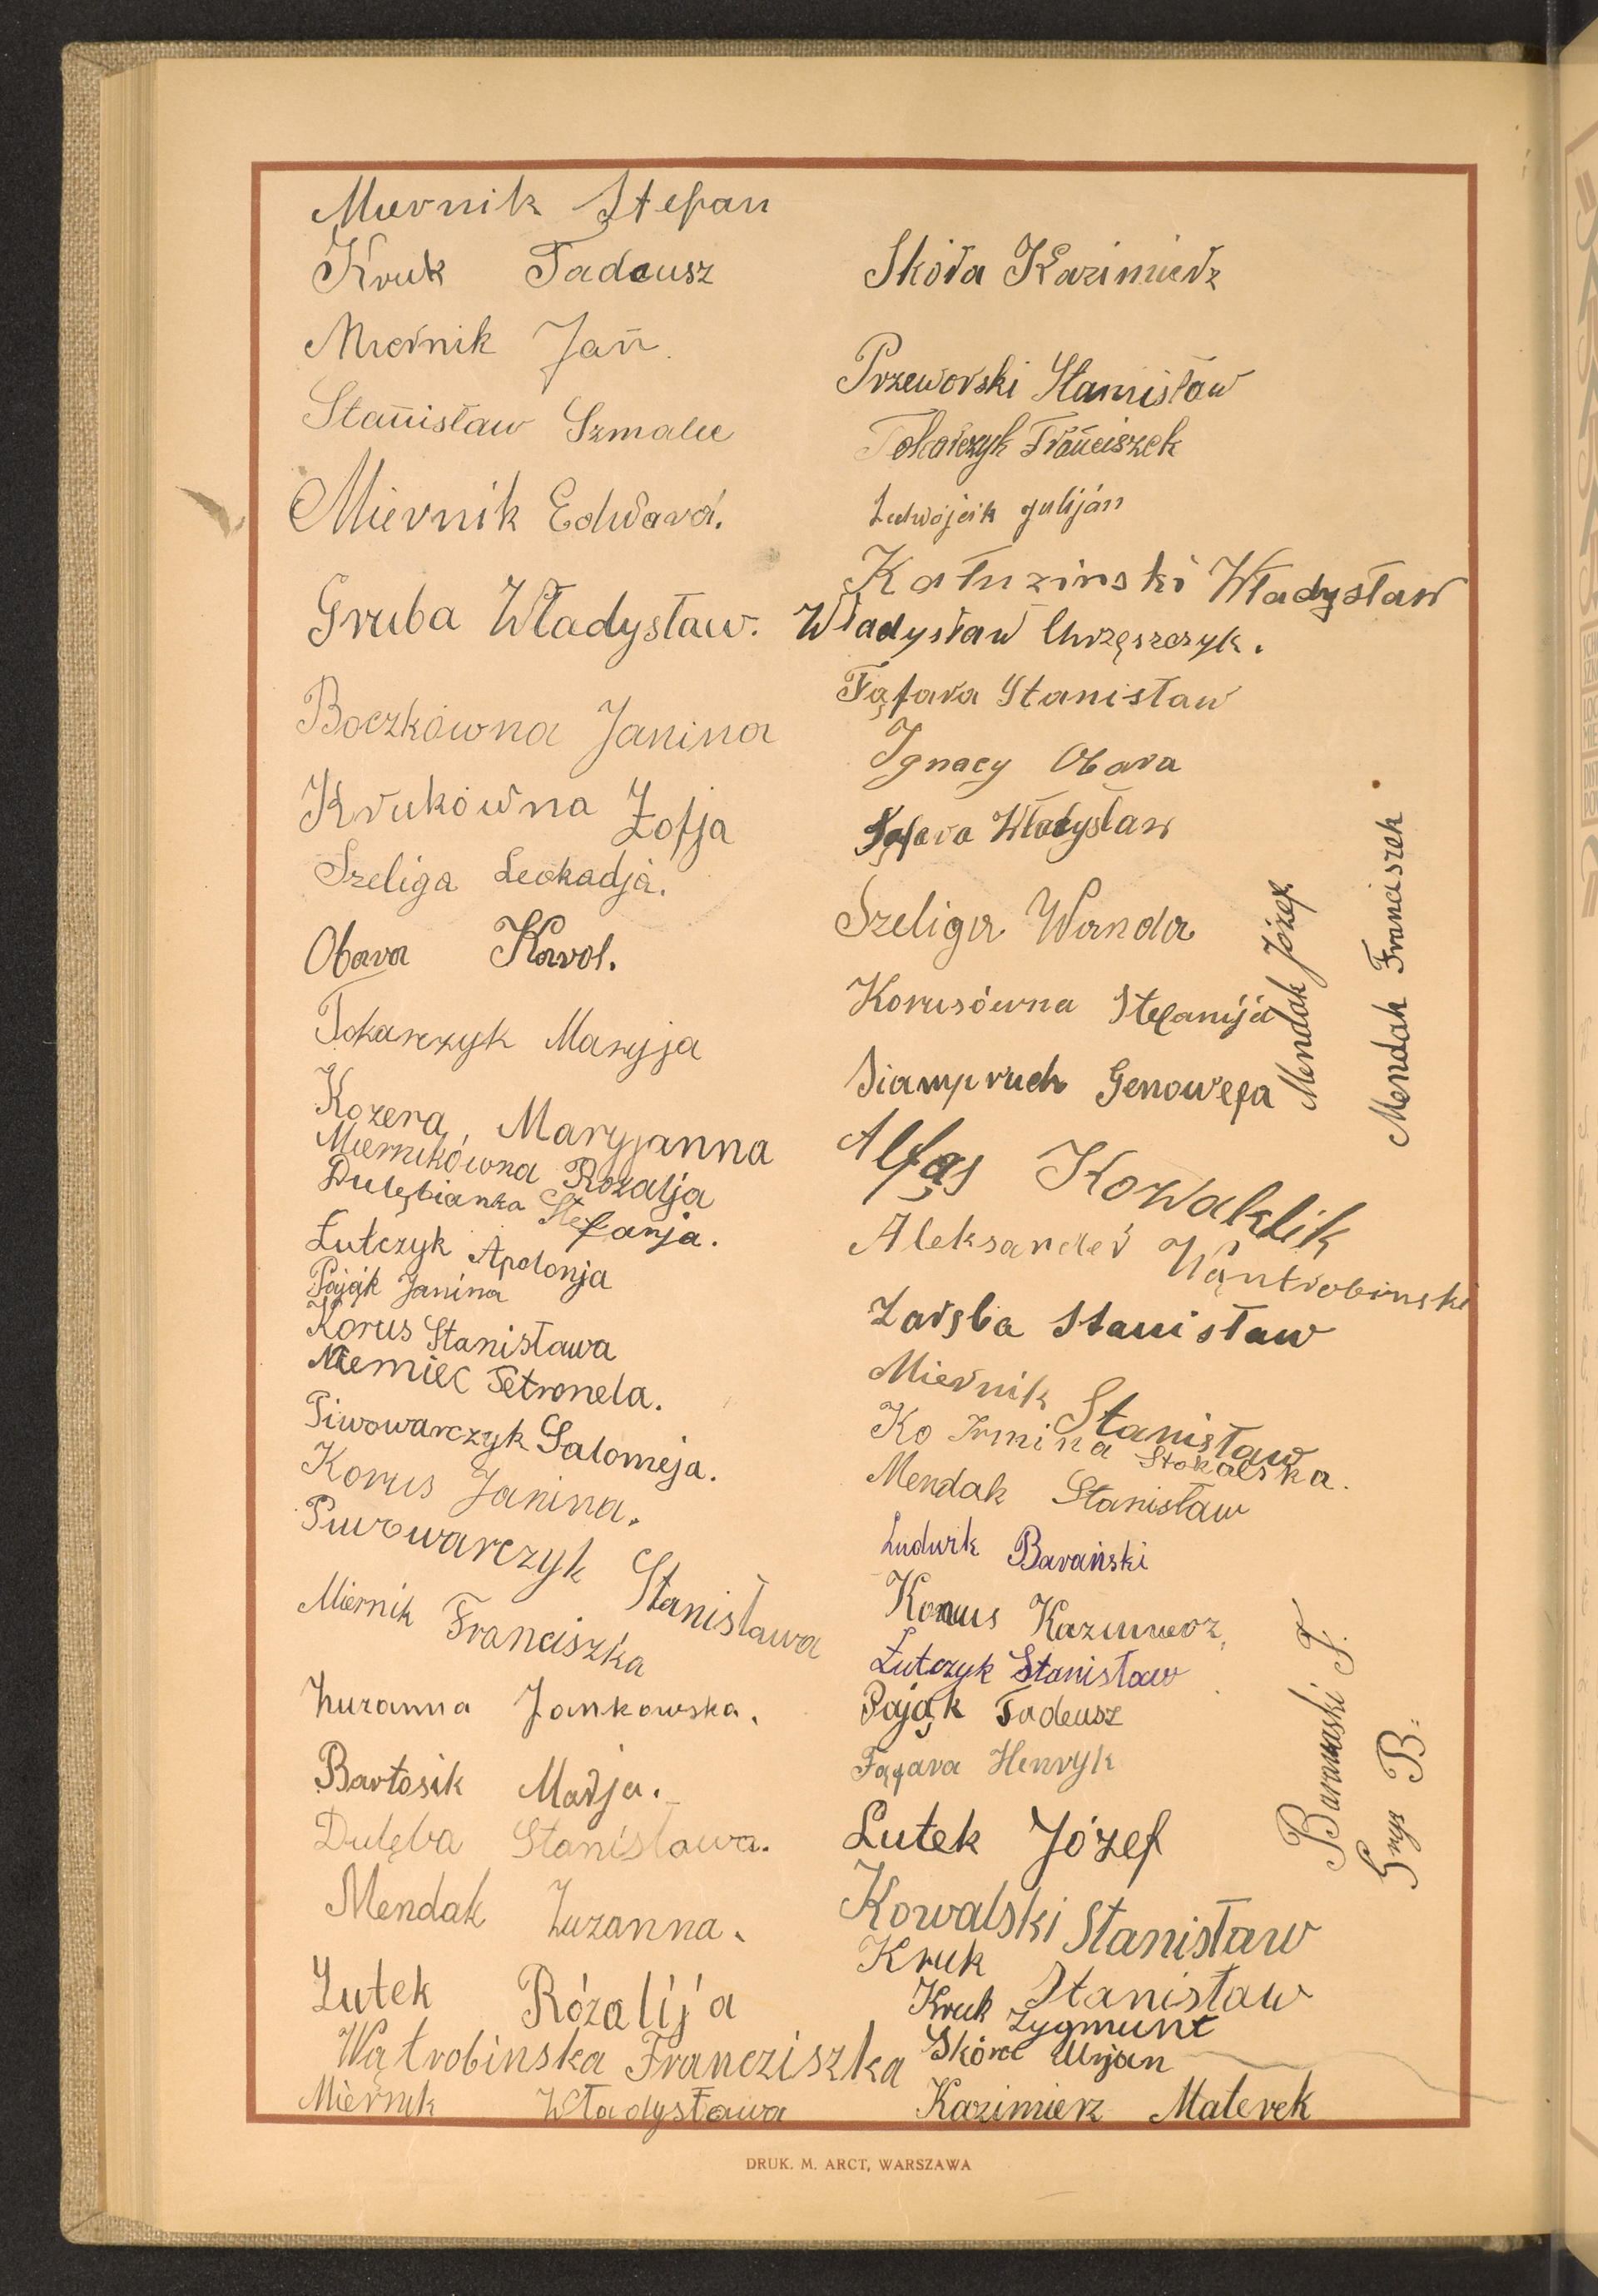 Miernik Stefan
Kruk Tadeusz
Miernik Jan
Stanisław Szmalec
Miernik Edward.
Gruba Władysław.
Boczkówna Janina
Krukówna Zofja
Szeliga Leokadja.
Obara Karol.
Tokarczyk Maryja
Kozera Maryjanna
Miernikówna Rozalja
Dulębianka Stefanja.
Łutczyk Apolonja
Pająk Janina
Korus Stanisława
Niemiec Petronela.
Piwowarczyk Salomeja.
Korus Janina.
Piwowarczyk Stanisława
Miernik Franciszka
Zuzanna Jankowska.
Bartosik Marja.
Dulęba Stanisława.
Mendak Zuzanna.
Lutek Rózalija
Wątrobinska Francziszka
Miernik Władysława
Skóra Kazimierz
Przeworski Stanisław
Tokarczyk Franciszek
Ludwojcik Julijan
Kałuzinski Władysław
Władysław Chrzęszczyk.
Fąfara Stanisław
Ignacy Obara
Fąfara Władysław
Szeliga Wanda
Korusówna Stefanija
Siampruch Genowefa
Alfąs Kowalklik
Aleksander Wąntrobinski
Zaręba Stanisław
Miernik Stanisław
Ko Irmina Stokalska.
Mendak Stanisław
Ludwik Barański
Korus Kazimierz
Łutczyk Stanisław
Pająk Tadeusz
Fąfara Henryk
Lutek Józef
Kowalski Stanisław
Kruk Stanisław
Kruk Zygmunt
Skóra
Kazimierz Materek
Mendak Józef
Mendak Franciszek
Baranski F.
Gryz B.
DRUK. M. ARCT, WARSZAWA